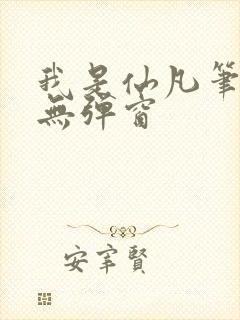 我是仙凡筆
無彈窗
安宰賢